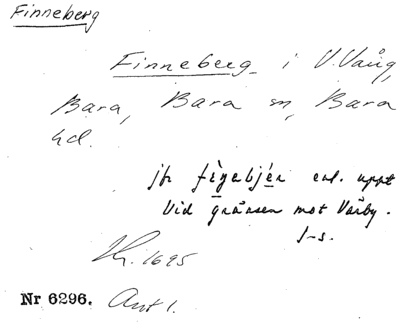 Finneberg
Finneberg i V. Vång,
Bara, Bara sn, Bara
hd.
jfr enl. uppt
Vid gränsen mot Värby.
l-s.
1695
Nr 6296. Ant 1.